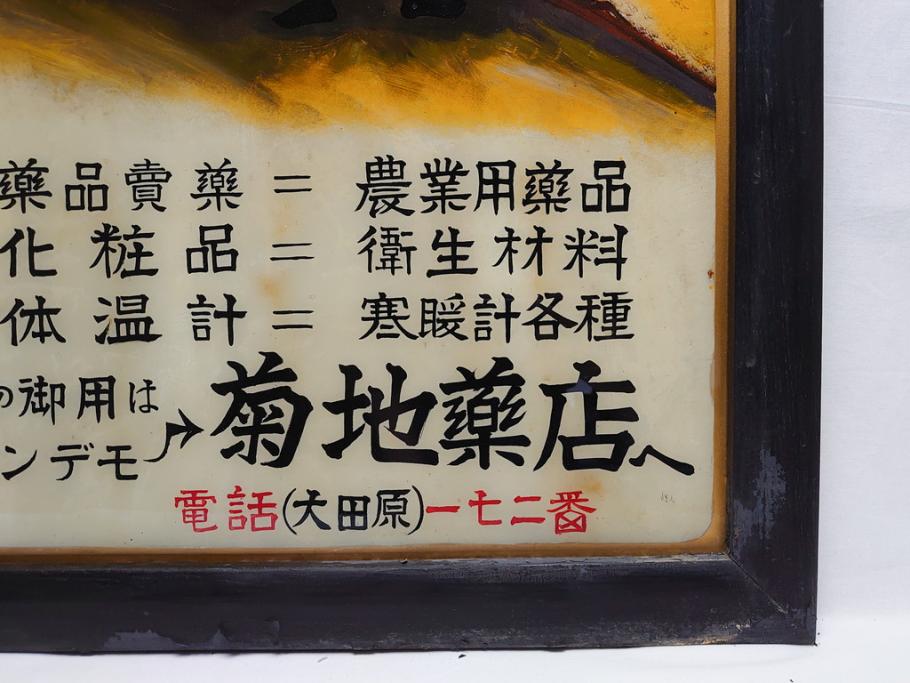 藥品賣藥＝農業用藥品
化粧品＝衛生材料
体温計＝寒暖計各種
の御用は
ンデモ
菊地薬店へ
電話(大田原)一七二番